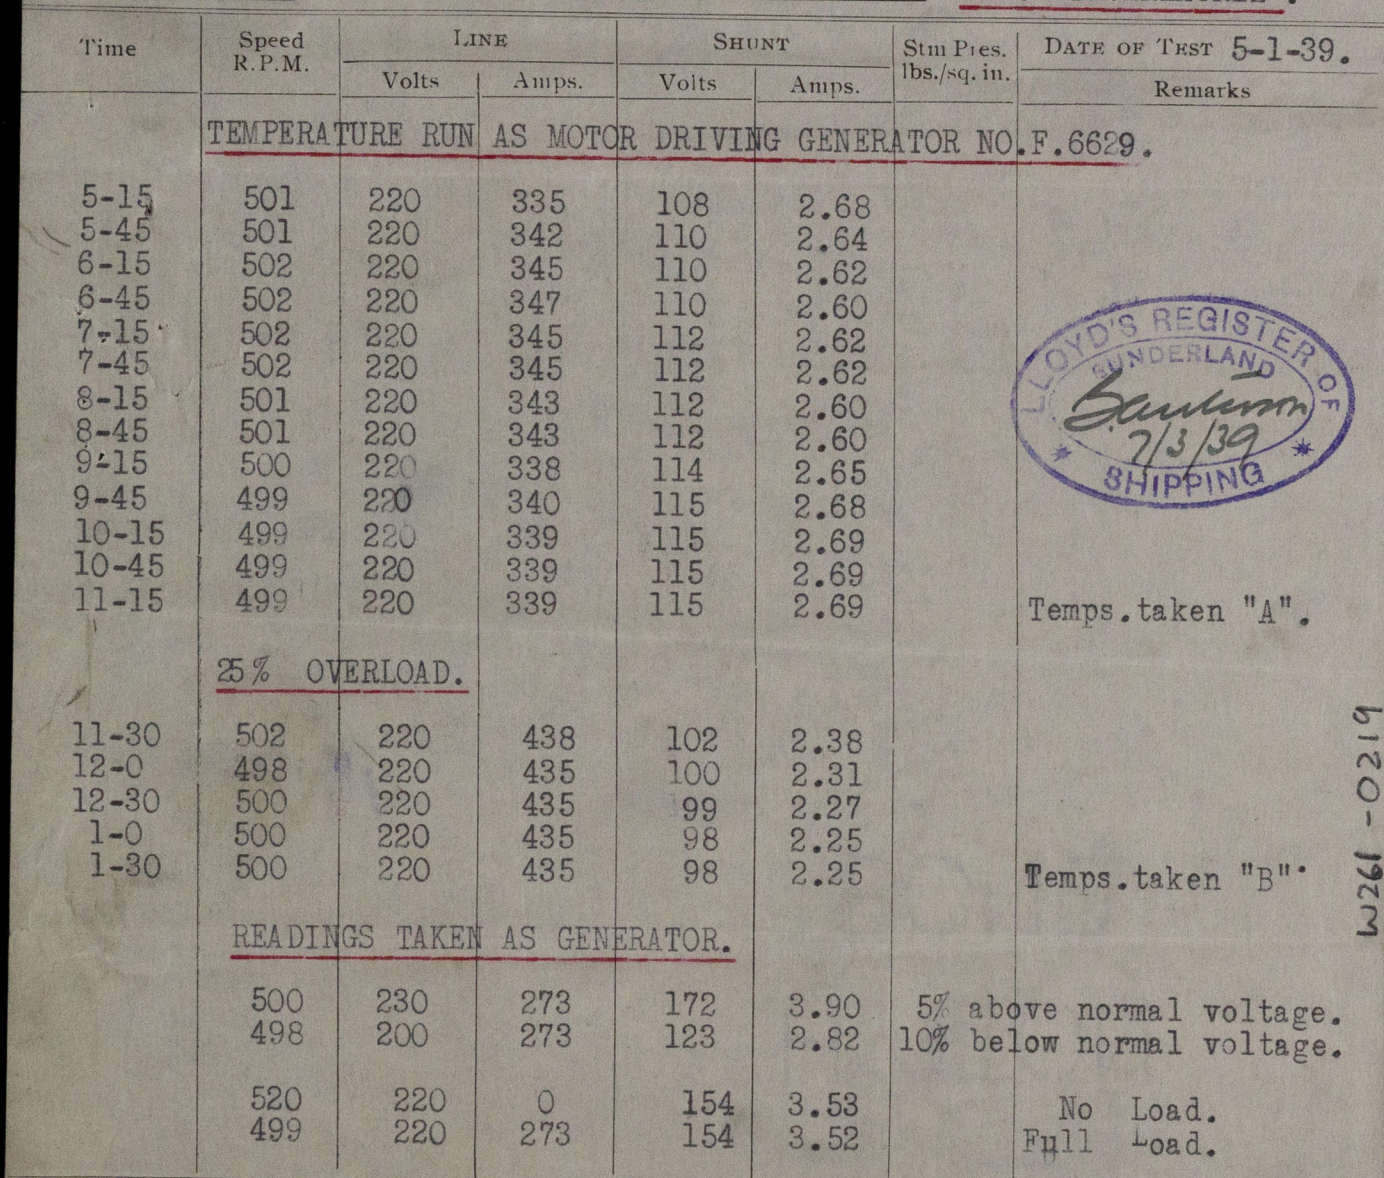 Time Speed R.P.M. LINE SHUNT Stm Pres. lbs./sq. in. DATE OF TEST 5-1-39.
Volts Amps. Volts Amps. Remarks
TEMPERATURE RUN AS MOTOR DRIVING GENERATOR NO.F.6629.
5-15 501 220 335 108 2.68
5-45 501 220 342 110 2.64
6-15 502 220 345 110 2.62
6-45 502 220 347 110 2.60
7-15 502 220 345 112 2.62
7-45 502 220 345 112 2.62
8-15 501 220 343 112 2.60
8-45 501 220 343 112 2.60
9-15 500 220 338 114 2.65
9-45 499 220 340 115 2.68
10-15 499 220 339 115 2.69
10-45 499 220 339 115 2.69
11-15 499 220 339 115 2.69 Temps.taken "A".
LLOYD'S REGISTER OF
SUNDERLAND
7/3/39
SHIPPING
25% OVERLOAD.
11-30 502 220 438 102 2.38
12-0 498 220 435 100 2.31
12-30 500 220 435 99 2.27
1-0 500 220 435 98 2.25
1-30 500 220 435 98 2.25 Temps.taken "B".
READINGS TAKEN AS GENERATOR.
500 230 273 172 3.90 5% above normal voltage.
498 200 273 123 2.82 10% below normal voltage.
520 220 0 154 3.53 No Load.
499 220 273 154 3.52 Full Load.
W261-0219